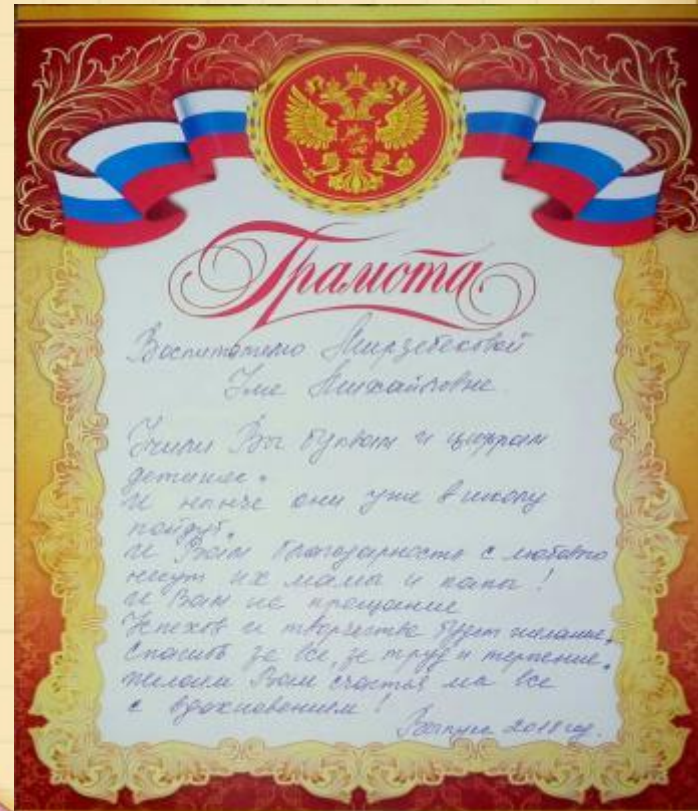 Грамота
Воспитателю Мирзебековой
Уме Михайловне
Учили Вы буквам и цифрам
детишек.
И нынче они уже в школу
пойдут.
И Вам благодарность с любовью
несут их мамы и папы!
И Вам на прощание
Успехов и творчества будет желание.
Спасибо за все, за труд и терпение.
Желаем Вам счастья мы все
с вдохновением!
Выпуск 2018 год.